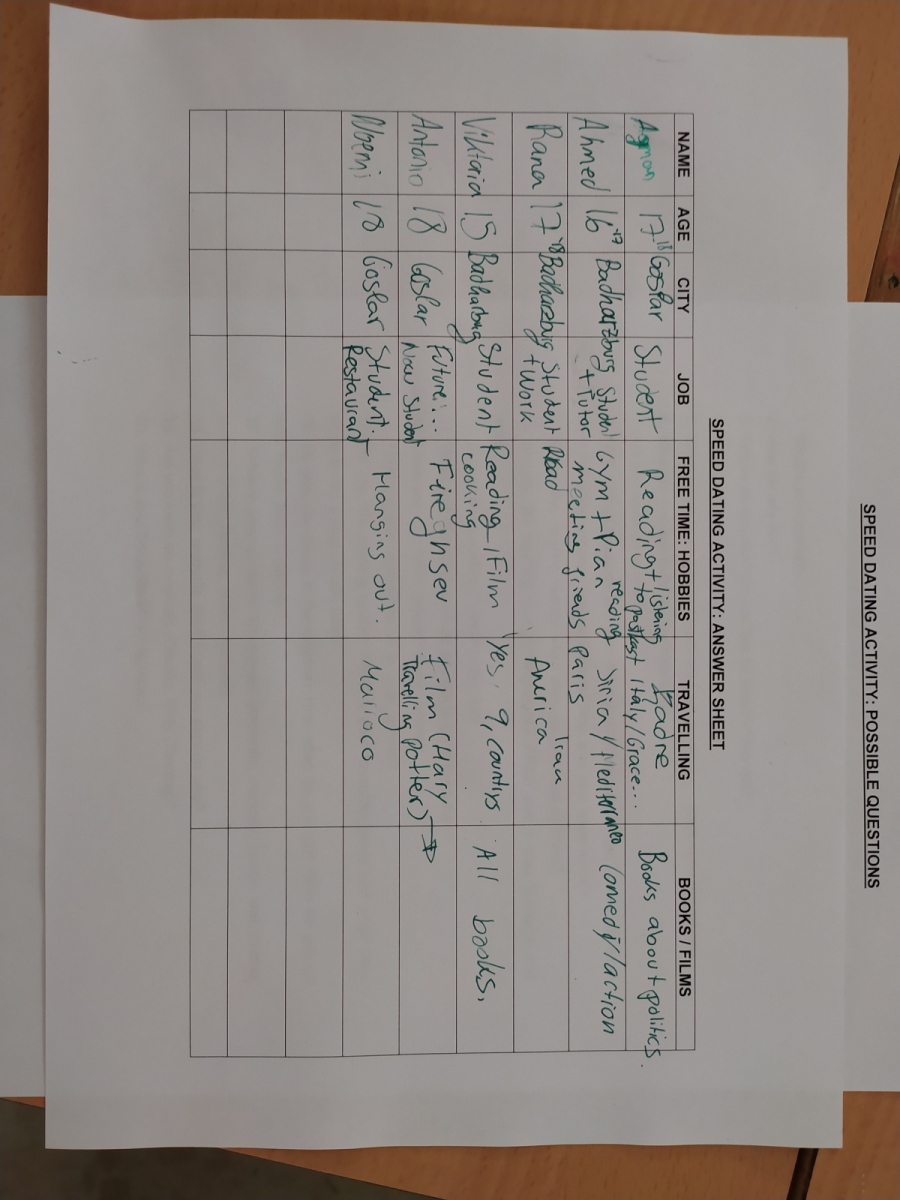 SPEED DATING ACTIVITY: POSSIBLE QUESTIONS
SPEED DATING ACTIVITY: ANSWER SHEET
NAME AGE CITY JOB FREE TIME: HOBBIES TRAVELLING BOOKS / FILMS
17 18 Goslar Student Reading + listening to Italy/Grace... Books about politics.
Ahmed 16 -17 Badharzburg + Tutor Gym + Pian reading meeting friends Paris Comedy/action
Rana 17 -18 Badharzburg Student + Work Read America
Viktaria 15 Student Reading, Film cooking Yes, 9, countrys. All books.
Antonio 18 Goslar Future:... Now Student Film (Hary Potter) → Travelling
Noemi 18 Goslar Student. Restaurant Hanging out.